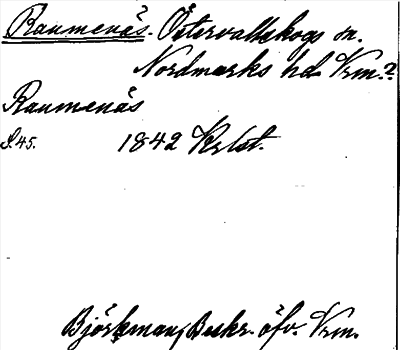 Raumenäs. Östervallskogs sn.
Nordmarks hd Vrm.?
Raumenäs
S. 45. 1842 Krlst.
Björkman, Beskr. öfv. Vrm.